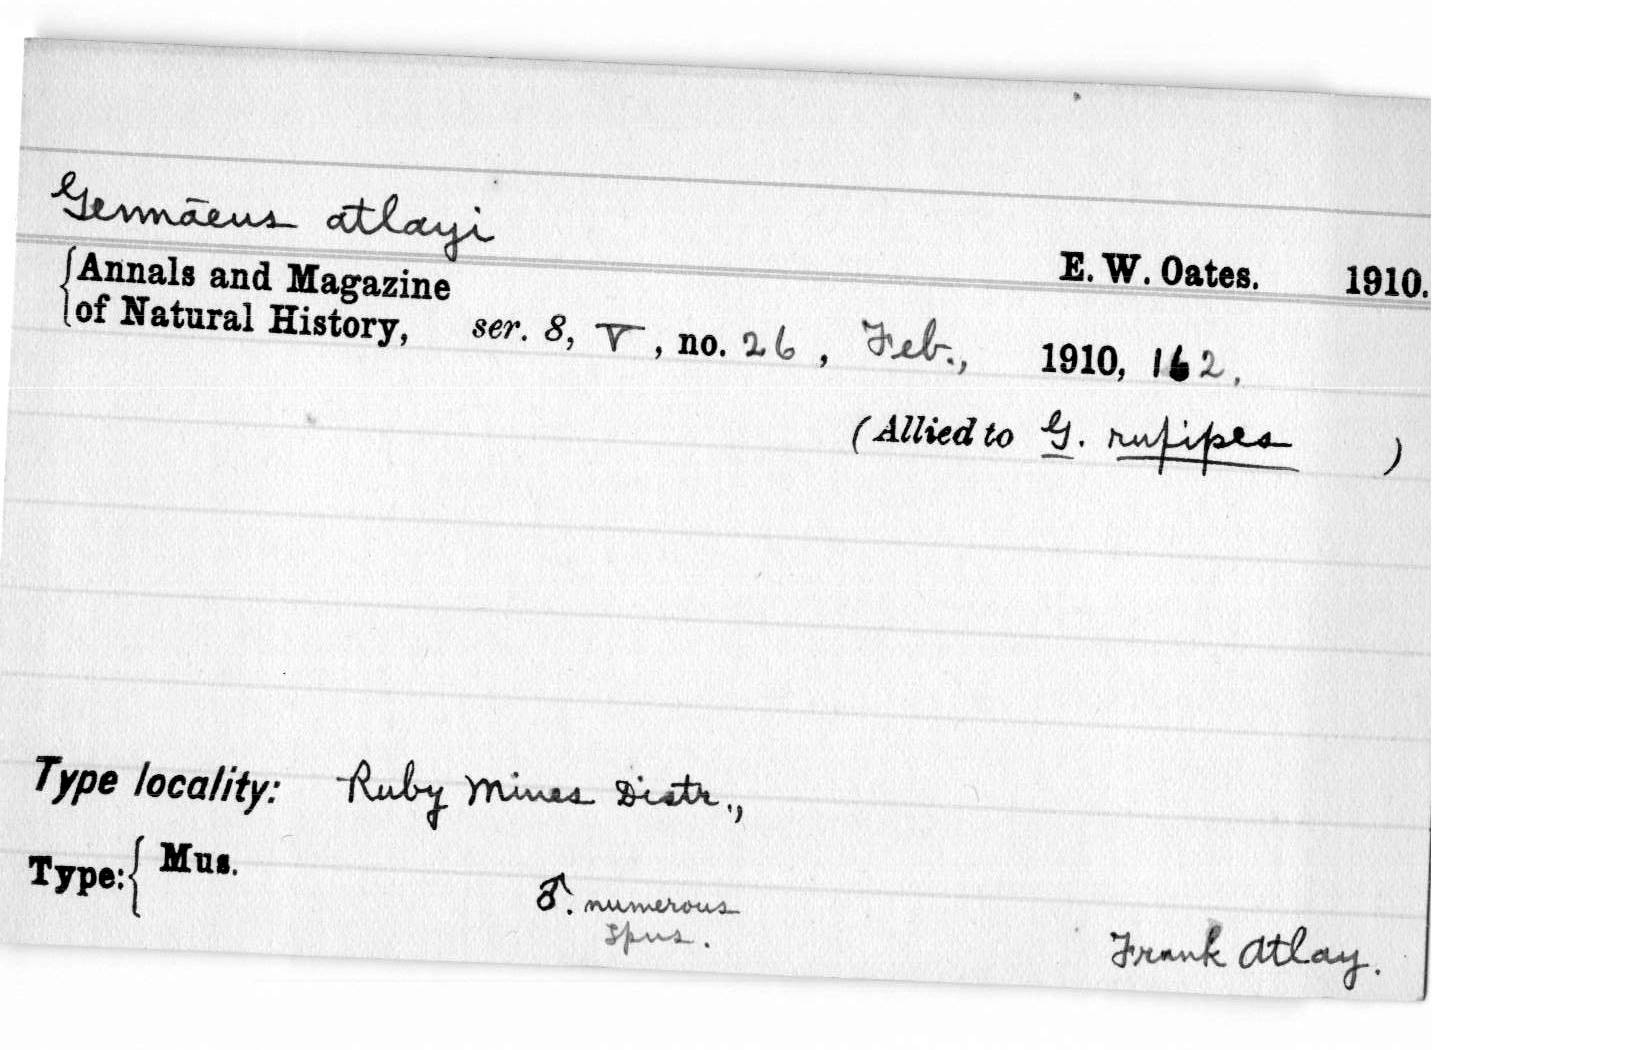 Gennāeus atlayi
E. W. Oates. 1910.
{Annals and Magazine
of Natural History, ser. 8, V, no. 26, Feb., 1910, 162.
(Allied to G. rufipes )
Type locality: Ruby Mines Distr.,
Type:{ Mus.
♂. numerous
spns.
Frank Atlay.